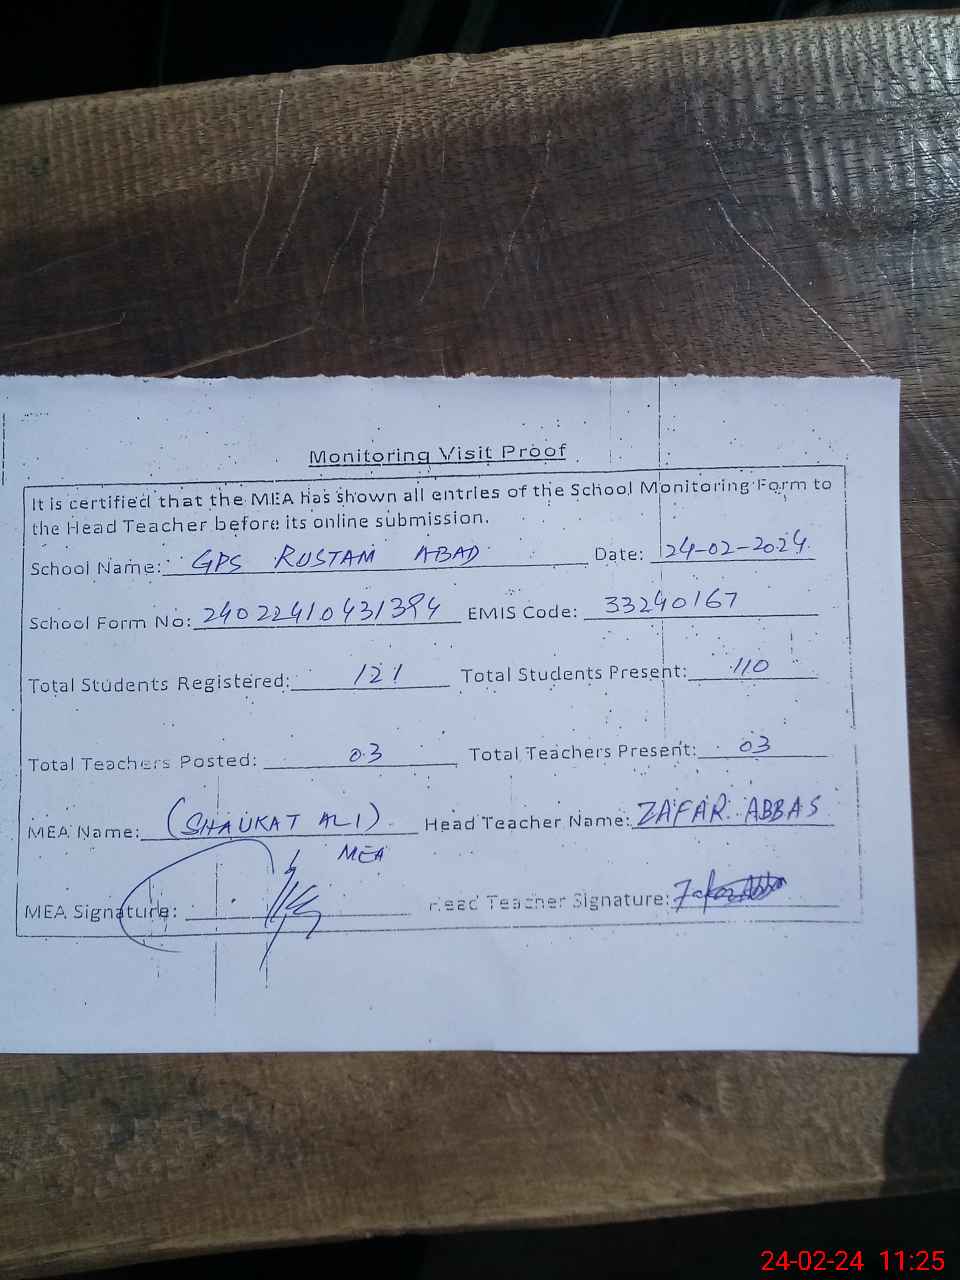 Monitoring Visit Proof
It is certified that the MEA has shown all entries of the School Monitoring Form to
the Head Teacher before its online submission.
School Name: GPS RUSTAM ABAD Date: 24-02-2024
School Form No: 24022410431384 EMIS Code: 33240167
Total Students Registered: 121 Total Students Present: 110
Total Teachers Posted: 03 Total Teachers Present: 03
MEA Name: (SHAUKAT ALI) Head Teacher Name: ZAFAR ABBAS
MEA
MEA Signature: Head Teacher Signature:
24-02-24 11:25